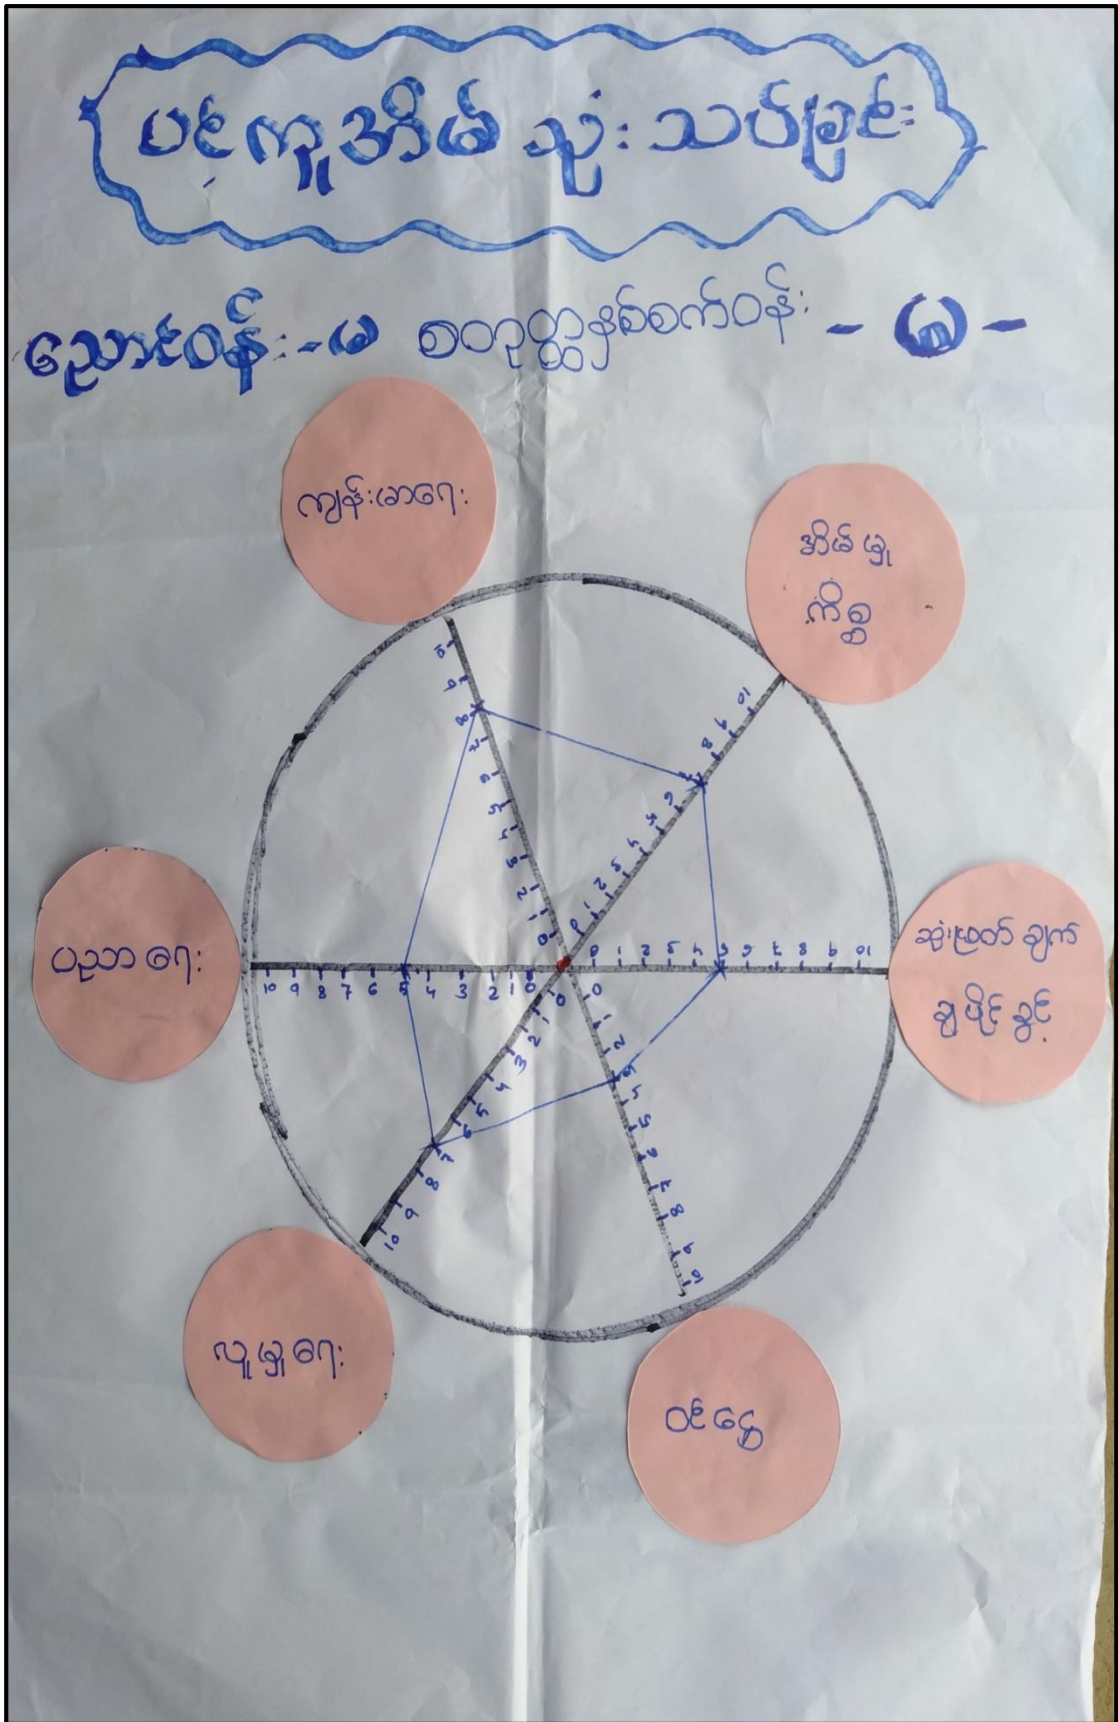 ပင့်ကူအိမ် သုံးသပ်ခြင်း
ညောင်ဝန်း-မ စတုတ္ထနှစ်စက်ဝန်း - မ -
ကျန်းမာရေး
အိမ်မှု
ကိစ္စ
ဆုံးဖြတ်ချက်
ချပိုင်ခွင့်
ဝင်ငွေ
လူမှုရေး
ပညာရေး
10 9 8 7 6 5 4 3 2 1 0
10 9 8 7 6 5 4 3 2 1 0
0 1 2 3 4 5 6 7 8 9 10
0 1 2 3 4 5 6 7 8 9 10
0 1 2 3 4 5 6 7 8 9 10
10 9 8 7 6 5 4 3 2 1 0